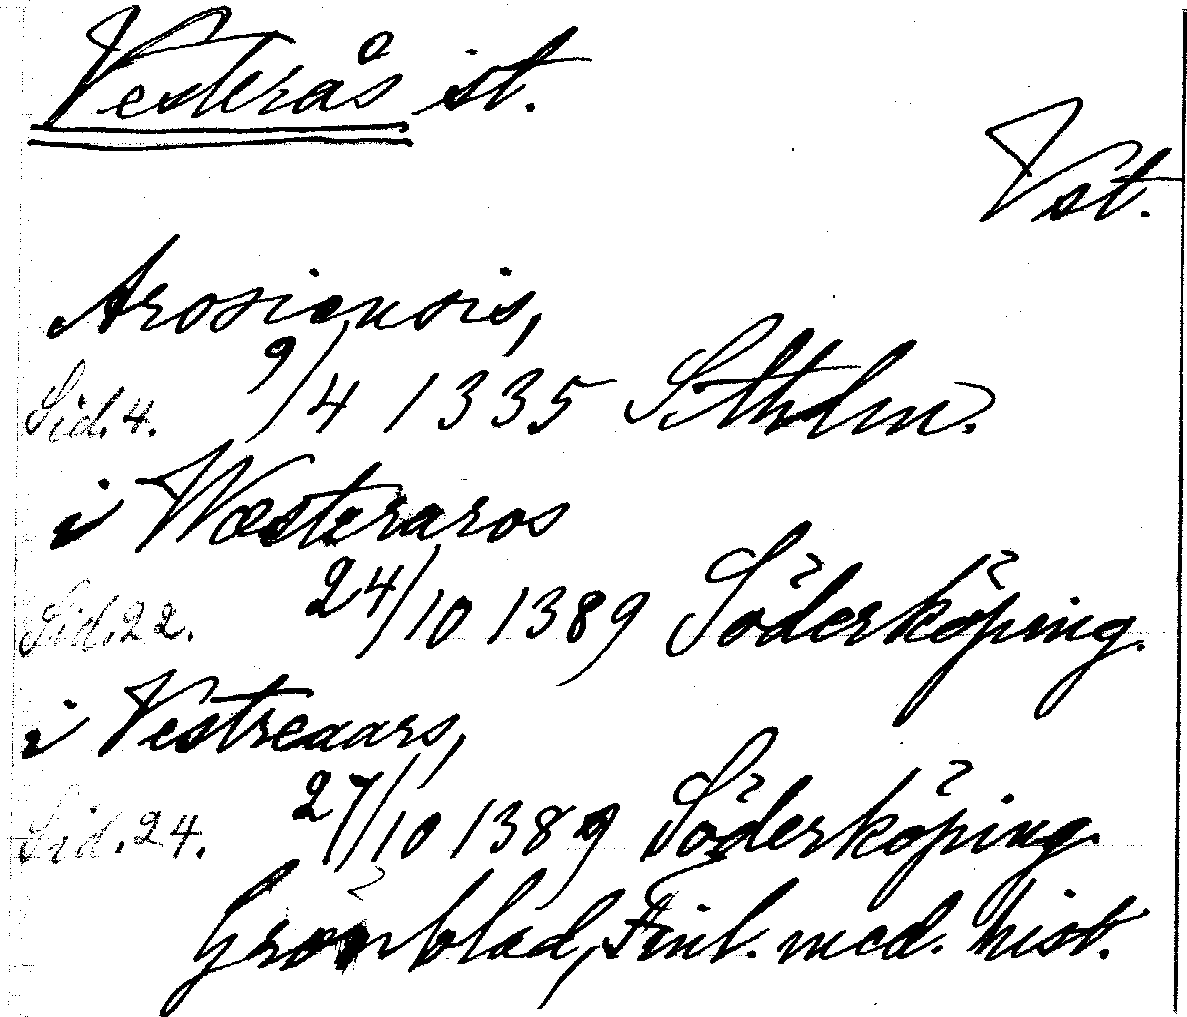 Vesterås st.
Vst.
Arosiensis,
Sid. 4. 9/4 1335 Sthlm.
i Wæsteraros
Sid. 22. 24/10 1389 Söderköping.
i Vestreaars,
Sid. 24. 27/10 1389 Söderköping.
Grönblad, Finl. med. hist.